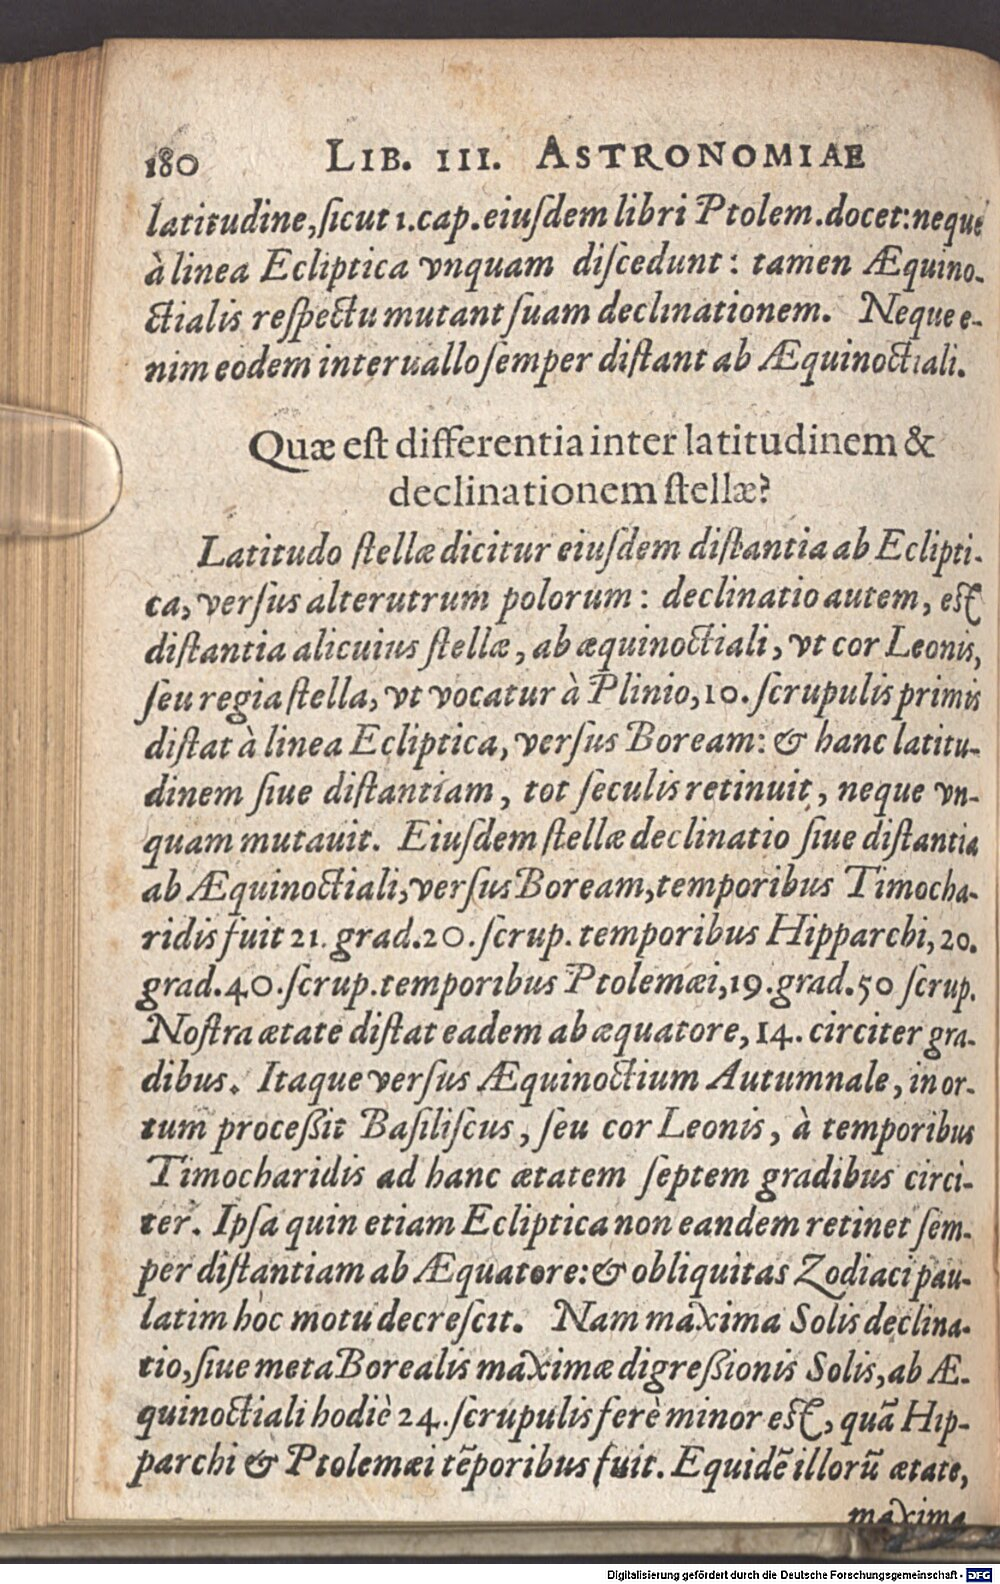 180 LIB. III. ASTRONOMIAE
latitudine, ſicut 1. cap. eiuſdem libri Ptolem. docet: neque
à linea Ecliptica vnquam diſcedunt: tamen Æquino-
ctialis reſpectu mutant ſuam declinationem. Neque e-
nim eodem interuallo ſemper diſtant ab Æquinoctiali.
Quæ eſt differentia inter latitudinem &
declinationem ſtellæ?
Latitudo ſtellæ dicitur eiuſdem diſtantia ab Eclipti-
ca, verſus alterutrum polorum: declinatio autem, eſt
diſtantia alicuius ſtellæ, ab æquinoctiali, vt cor Leonis,
ſeu regia ſtella, vt vocatur à Plinio, 10. ſcrupulis primis
diſtat à linea Ecliptica, verſus Boream: & hanc latitu-
dinem ſiue diſtantiam, tot ſeculis retinuit, neque vn-
quam mutauit. Eiuſdem ſtellæ declinatio ſiue diſtantia
ab Æquinoctiali, verſus Boream, temporibus Timocha-
ridis fuit 21. grad. 20. ſcrup. temporibus Hipparchi, 20.
grad. 40. ſcrup. temporibus Ptolemæi, 19. grad. 50 ſcrup.
Noſtra ætate diſtat eadem ab æquatore, 14. circiter gra-
dibus. Itaque verſus Æquinoctium Autumnale, in or-
tum proceßit Baſiliſcus, ſeu cor Leonis, à temporibus
Timocharidis ad hanc ætatem ſeptem gradibus circi-
ter. Ipſa quin etiam Ecliptica non eandem retinet ſem-
per diſtantiam ab Æquatore: & obliquitas Zodiaci pau-
latim hoc motu decreſcit. Nam maxima Solis declina-
tio, ſiue meta Borealis maximæ digreßionis Solis, ab Æ-
quinoctiali hodiè 24. ſcrupulis ferè minor eſt, quã Hip-
parchi & Ptolemæi tẽporibus fuit. Equidẽ illorũ ætate,
maxima
Digitalisierung gefördert durch die Deutsche Forschungsgemeinschaft - DFG